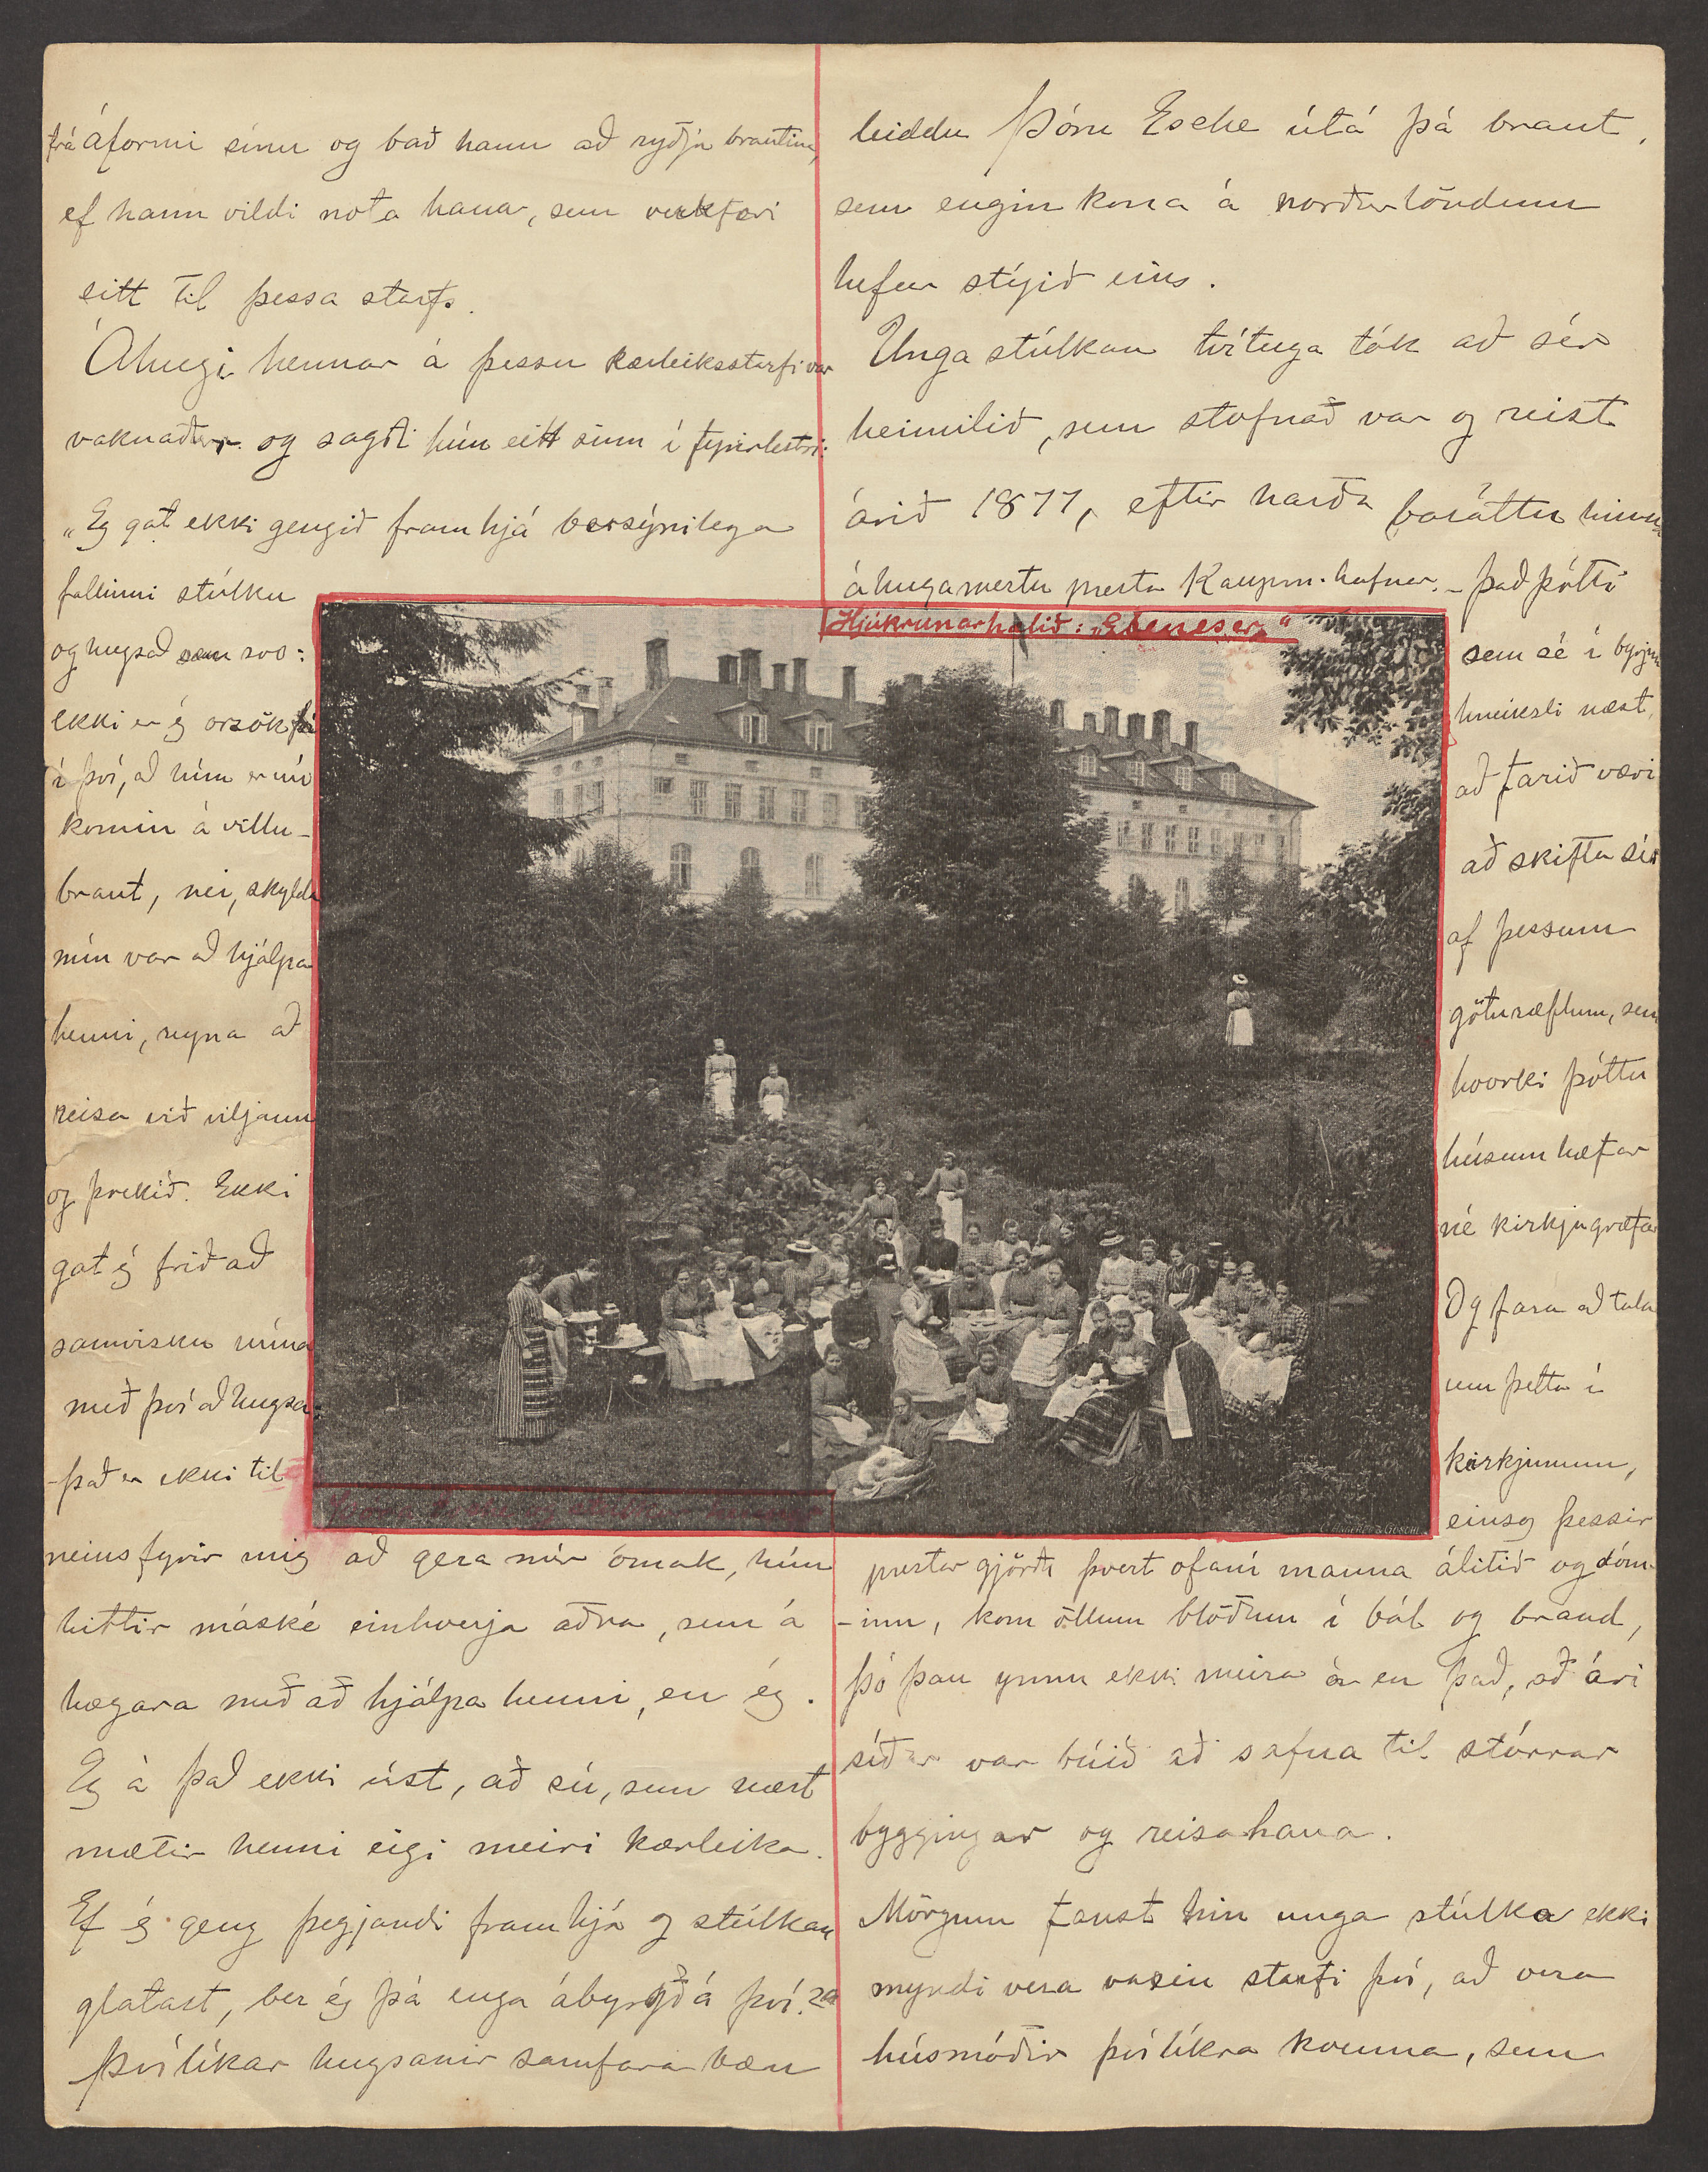 frá áformi sínu og bað hann að ryðja brautina,
ef hann vildi nota hana, sem verkfæri
sitt til þessa starfs.
Áhugi hennar á þessu kærleiksstarfi var
vaknaður og sagði hún eitt sinn í fyrirlestri:
„Eg gat ekki gengið framhjá bersýnilega
fallinni stúlku
og hugsað sem svo:
ekki er ég orsök
í því, að hún er nú
komin á villu-
braut, nei, skylda
mín var að hjálpa
henni, reyna að
reisa við viljann
og þrekið. Ekki
gat ég friðað
samvisku mína
með því að hugsa:
-það er ekki til
neins fyrir mig að gera mér ómak, hún
hittir máské einhverja aðra, sem á
hægara með að hjálpa henni, en ég.
Eg á það ekki víst, að sú, sem næst
mætir henni eigi meiri kærleika.
Ef ég geng þegjandi framhjá og stúlkan
glatast, ber ég þá enga ábyrgð á því?"
Þvílíkar hugsanir samfara bæn
leiddu Þóru Esche útá þá braut,
sem engin kona á norðurlöndum
hefur stígið eins.
Unga stúlkan tvítuga tók að sér
heimilið, sem stofnað var og reist
árið 1877, eftir harða baráttu hinna
áhugamestu presta Kaupm.hafnar. - Það þótti
sem sé í byrjun
hneiksli næst,
að farið væri
að skifta sér
af þessum
göturæflum, sem
hvorki þóttu
húsum hæfar
né kirkjugræfar
Og fara að tala
um þetta í
kirkjunum,
einsog þessir
prestar gjörðu þvert ofaní manna álitið og dóm-
-inn, kom öllum blöðum í bál og brand,
þó þau ynnu ekki meira á en það, að ári
síðar var búið að safna til stórrar
byggingar og reisa hana.
Mörgum fanst hin unga stúlka ekki
myndi vera vaxin starfi því, að vera
húsmóðir þvílíkra kvenna, sem
Hjúkrunarhælið: „Ebeneser"